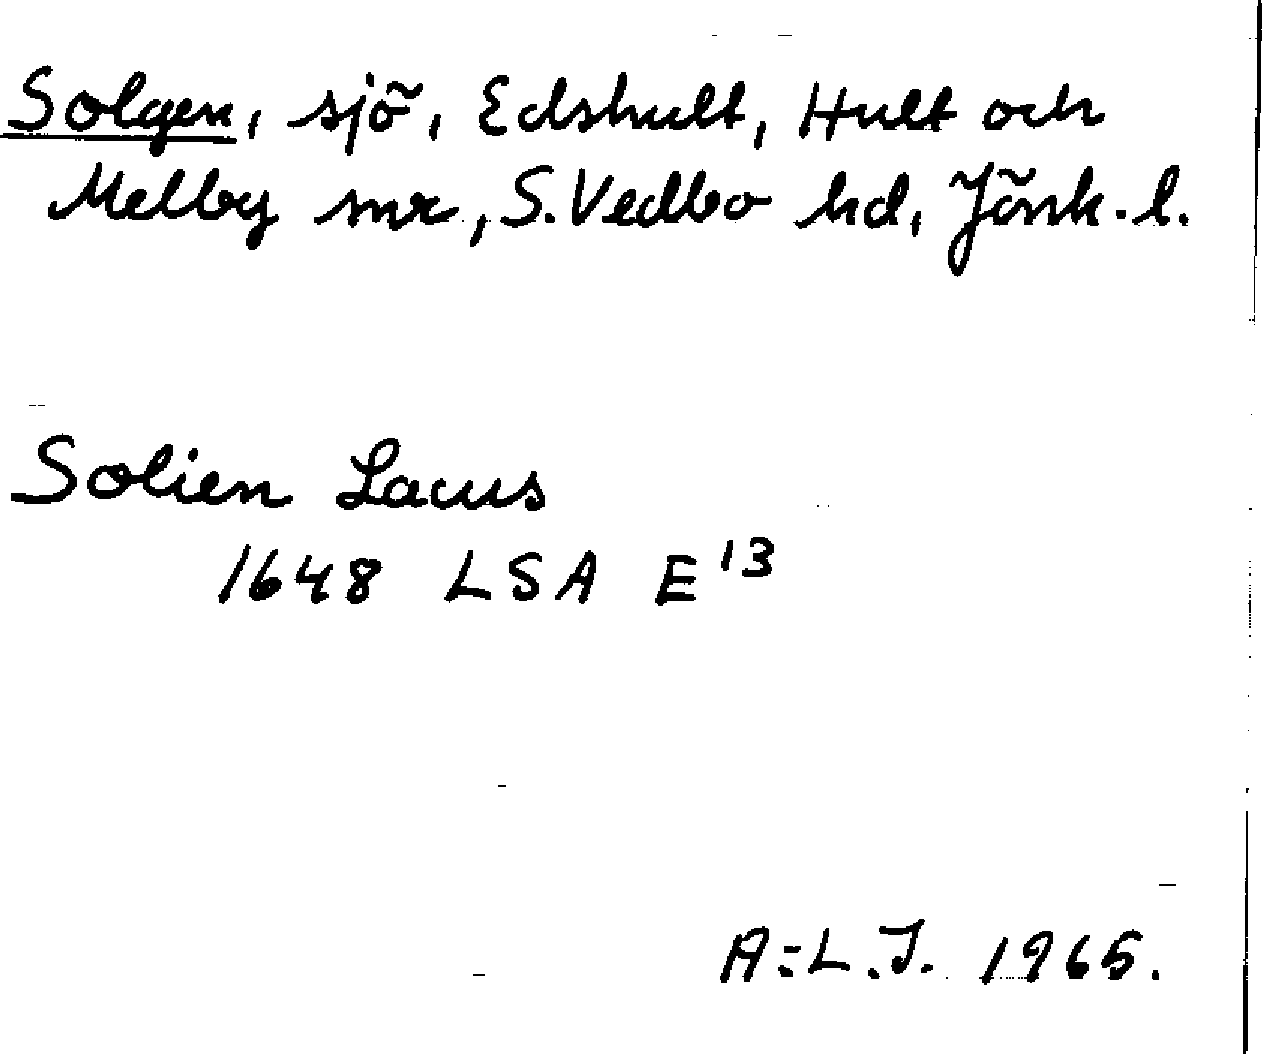 Solgen, sjö, Edshult, Hult och
Mellby snr, S. Vedbo hd, Jönk. l.
Solien Lacus
1648 LSA E 13
A:L.J. 1965.